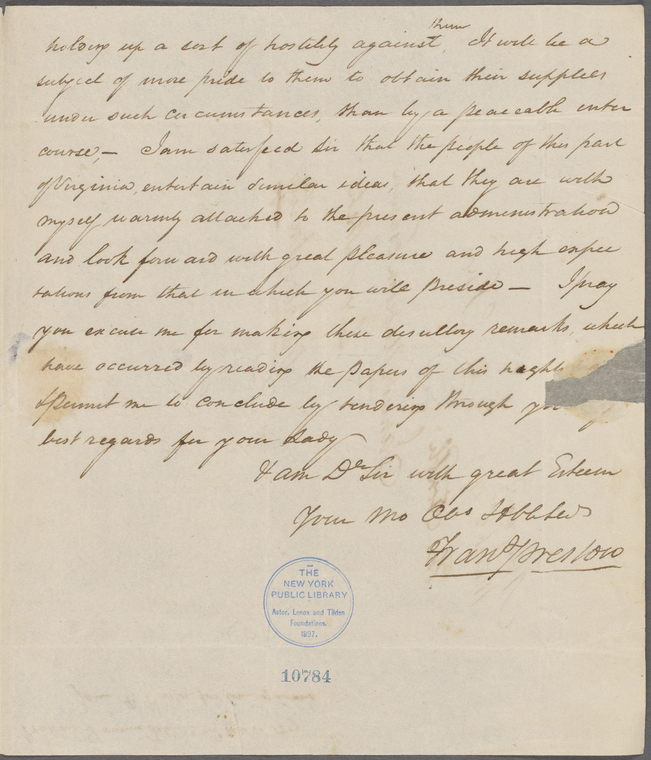 them
holding up a sort of hostility against. It will be a
subject of more pride to them to obtain their supplies
under such circumstances, than by a peaceable inter
course,— I am satisfeed Sir that the people of this part
of Virginia, entertain similar ideas, that they are with
myself warmly attached to the present administration
and look forward with great pleasure and high expec
tations from that in which you will Preside — I pray
you excuse me for making these desultory remarks, which
have occurred by reading the Papers of this night
& Permit me to conclude by tendering through yo
best regards for your Lady
I am Dr Sir with great Esteem
Your Mo Obt Hble
Frans Preston
THE
NEW YORK
PUBLIC LIBRARY
Astor, Lenox and Tilden
Foundations.
1897.
10784